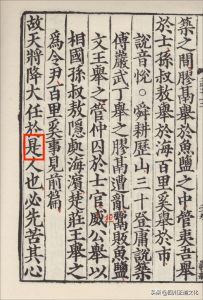 築之間膠鬲舉於魚鹽之中管夷吾舉
於士孫叔敖舉於海百里奚舉於市
說音悅○舜耕歷山三十登庸說築
傅巖武丁舉之膠鬲遭亂鬻販魚鹽
文王舉之管仲囚於士官威公舉以
相國孫叔敖隱處海濱楚莊王舉之
爲令尹百里奚事見前篇
故天將降大任於是人也必先苦其心